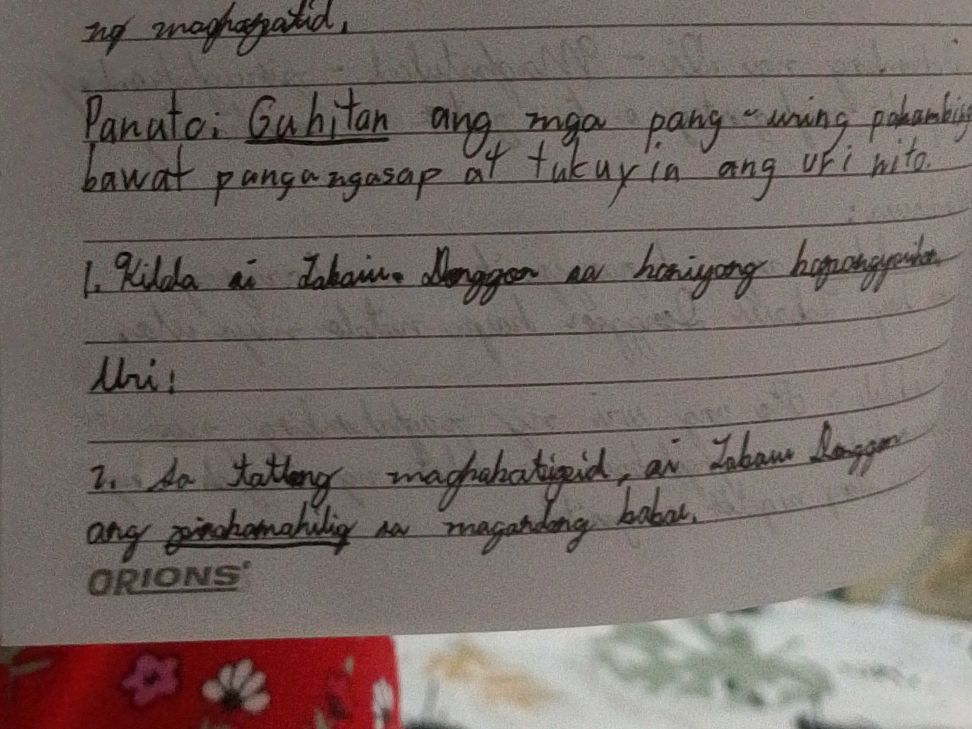 ng maghapatid.
Panuto: Guhitan ang mga pang-uring pahambing
bawat pangangasap at tukuyin ang uri nito.
1. Kilda si Labaw Donggon sa kaniyang kapangyarihan
Uri:
2. Sa tatlong maghahatigpid, si Labaw Donggon
ang pinakamahilig sa magandang babae.
ORIONS